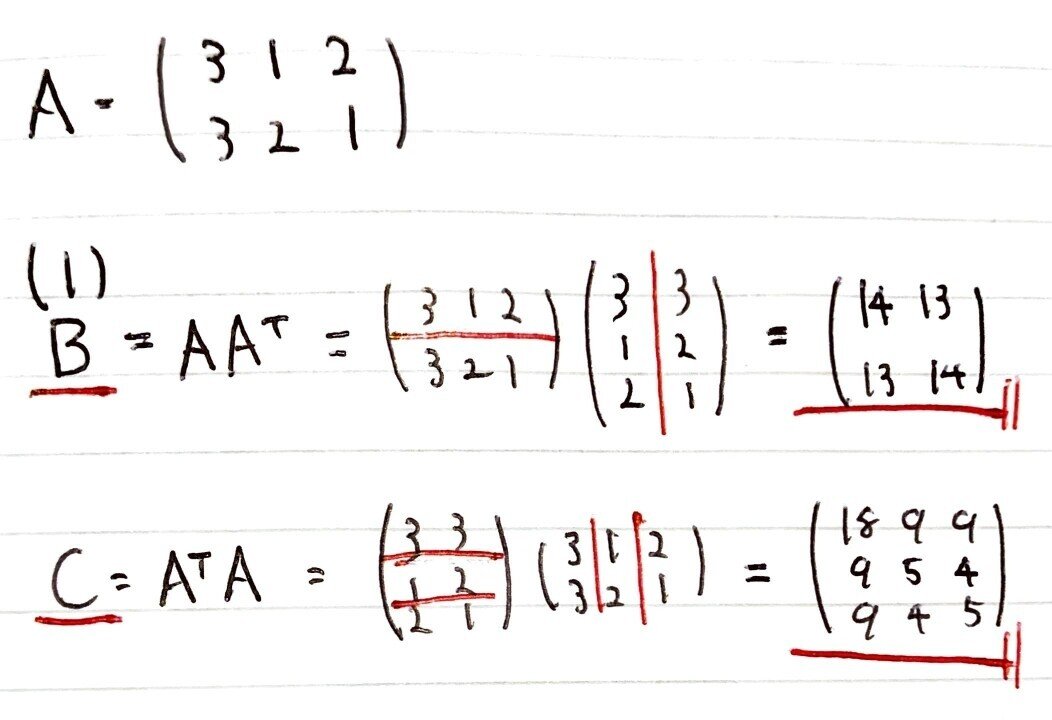 A = (3 1 2
3 2 1)
(1)
B = AAᵀ = (3 1 2
3 2 1) (3 3
1 2
2 1) = (14 13
13 14)
C = AᵀA = (3 3
1 2
2 1) (3 1 2
3 2 1) = (18 9 9
9 5 4
9 4 5)